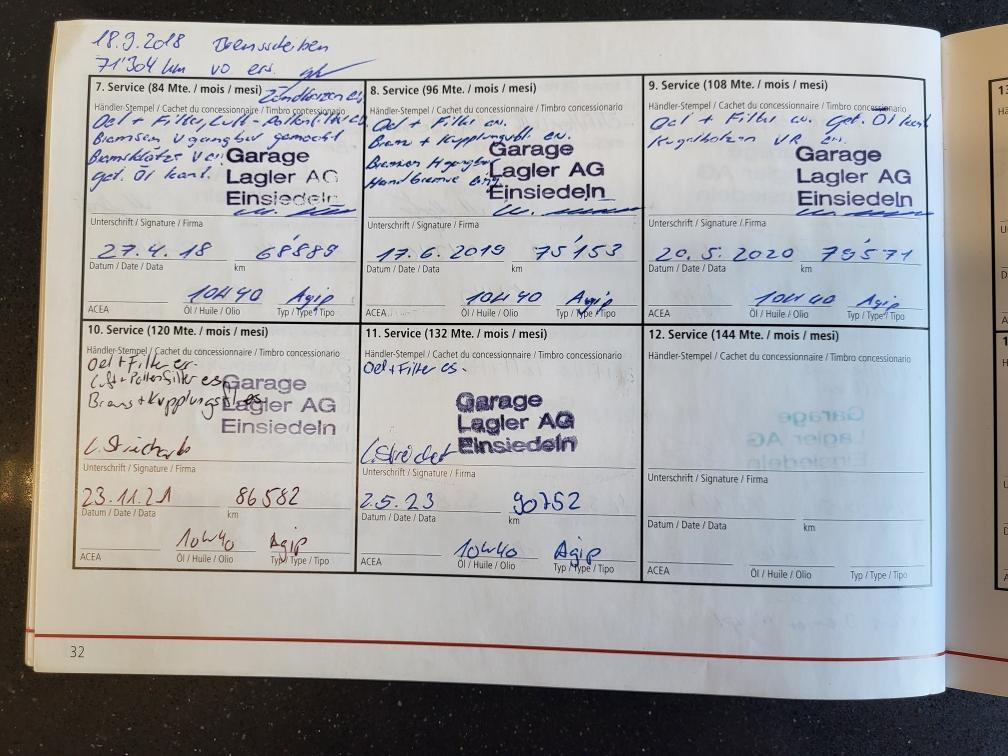 18.9.2018 Bremsscheiben
71'304 km VO ers.
7. Service (84 Mte. / mois / mesi) Zündkerzen ers
Händler-Stempel / Cachet du concessionnaire / Timbro concessionario
Oel + Filter, Luft-Pollenfilter ers
Bremsen V gangbar gemacht
Bremsklötze V er.
get. Öl kont.
Garage
Lagler AG
Einsiedeln
Unterschrift / Signature / Firma
27.4.18 68'889
Datum / Date / Data km
10W40 Agip
ACEA Öl / Huile / Olio Typ / Type / Tipo
8. Service (96 Mte. / mois / mesi)
Händler-Stempel / Cachet du concessionnaire / Timbro concessionario
Oel + Filter er.
Brems + Kupplungsöl er.
Bremsen H gangbar
Handbremse
Garage
Lagler AG
Einsiedeln
Unterschrift / Signature / Firma
17.6.2019 75'153
Datum / Date / Data km
10W40 Agip
ACEA Öl / Huile / Olio Typ / Type / Tipo
9. Service (108 Mte. / mois / mesi)
Händler-Stempel / Cachet du concessionnaire / Timbro concessionario
Oel + Filter er. Get. Öl kont
VR er.
Garage
Lagler AG
Einsiedeln
Unterschrift / Signature / Firma
20.5.2020 79'571
Datum / Date / Data km
10W40 Agip
ACEA Öl / Huile / Olio Typ / Type / Tipo
10. Service (120 Mte. / mois / mesi)
Händler-Stempel / Cachet du concessionnaire / Timbro concessionario
Oel + Filter er.
Luft + Pollenfilter ers
Brems + Kupplungsöl es
Garage
Lagler AG
Einsiedeln
Unterschrift / Signature / Firma
23.11.21 86582
Datum / Date / Data km
10W40 Agip
ACEA Öl / Huile / Olio Typ / Type / Tipo
11. Service (132 Mte. / mois / mesi)
Händler-Stempel / Cachet du concessionnaire / Timbro concessionario
Oel + Filter es.
Garage
Lagler AG
Einsiedeln
Unterschrift / Signature / Firma
2.5.23 90752
Datum / Date / Data km
10W40 Agip
ACEA Öl / Huile / Olio Typ / Type / Tipo
12. Service (144 Mte. / mois / mesi)
Händler-Stempel / Cachet du concessionnaire / Timbro concessionario
Unterschrift / Signature / Firma
Datum / Date / Data km
ACEA Öl / Huile / Olio Typ / Type / Tipo
32